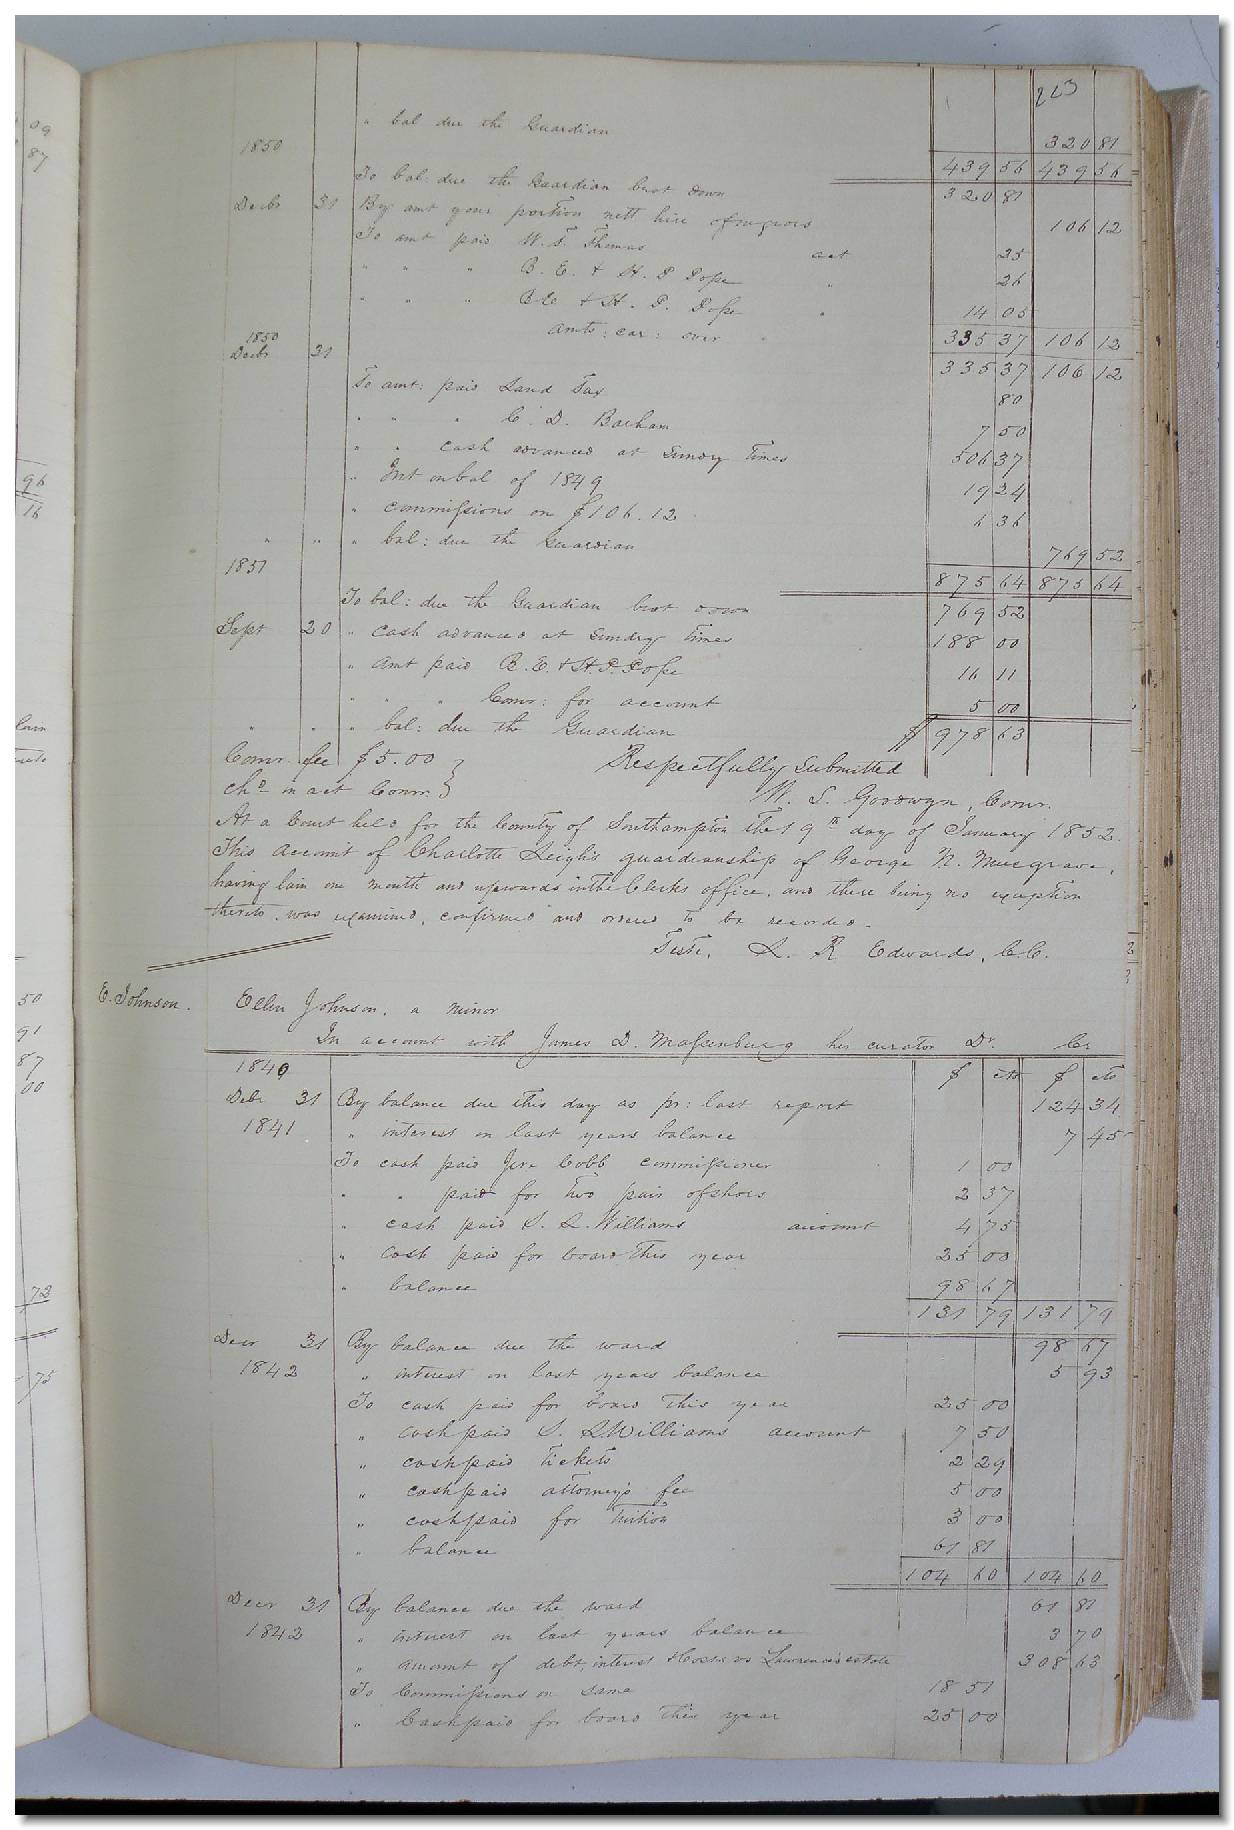 223
" bal due the Guardian 320 81
1850 439 56 439 56
To bal. due the Guardian brot down 320 81
Decbr 31 By amt your portion nett hire of negroes 106 12
To amt paid W. T. Thomas act 25
" " " B. E. & H. D Pope " 26
" " " B E & H. D. Pope " 14 05
amts: car: over 335 37 106 12
1850
Decbr 31 335 37 106 12
To amt: paid Land Tax 80
" " " C. D. Barham 7 50
" " cash advanced at Sundry times 506 37
" Int on bal of 1849 19 24
" commissions on $106.12 6 36
" " " bal: due the Guardian 769 52
1851 875 64 875 64
To bal: due the Guardian brot down 769 52
Sept 20 " cash advanced at Sundry times 188 00
" amt paid B. E. & H. D. Pope 16 11
" " " Comr: for account 5 00
" " " bal: due the Guardian $ 978 63
Comr. fee $5.00 } Respectfully Submitted
Chd in act Comr. } W. S. Goodwyn, Comr.
At a Court held for the County of Southampton the 19th day of January 1852.
This account of Charlotte Leigh's guardianship of George N. Musgrave,
having lain one month and upwards in the Clerks office, and there being no exception
thereto, was examined, confirmed and ordered to be recorded.
Teste, L. R Edwards, C.C.
E. Johnson. Ellen Johnson, a minor
In account with James D. Massenburg her curator Dr. Cr
1840 $ cts $ cts
Debr 31 By balance due this day as pr: last report 124 34
1841 " interest on last years balance 7 45
To cash paid Jere Cobb commissioner 1 00
" " paid for two pair of shoes 2 37
" cash paid S. L. Williams account 4 75
" cash paid for board this year 25 00
" balance 98 67
131 79 131 79
Decr 31 By balance due the ward 98 67
1842 " interest on last years balance 5 93
To cash paid for board this year 25 00
" cash paid S. L Williams account 7 50
" cash paid tickets 2 29
" cash paid attorney's fee 5 00
" cash paid for tuition 3 00
" balance 61 81
104 60 104 60
Decr 31 By balance due the ward 61 81
1843 " interest on last years balance 3 70
" amount of debt, interest & Costs vs Lawrence's estate 308 63
To Commissions on same 18 51
" Cash paid for board this year 25 00